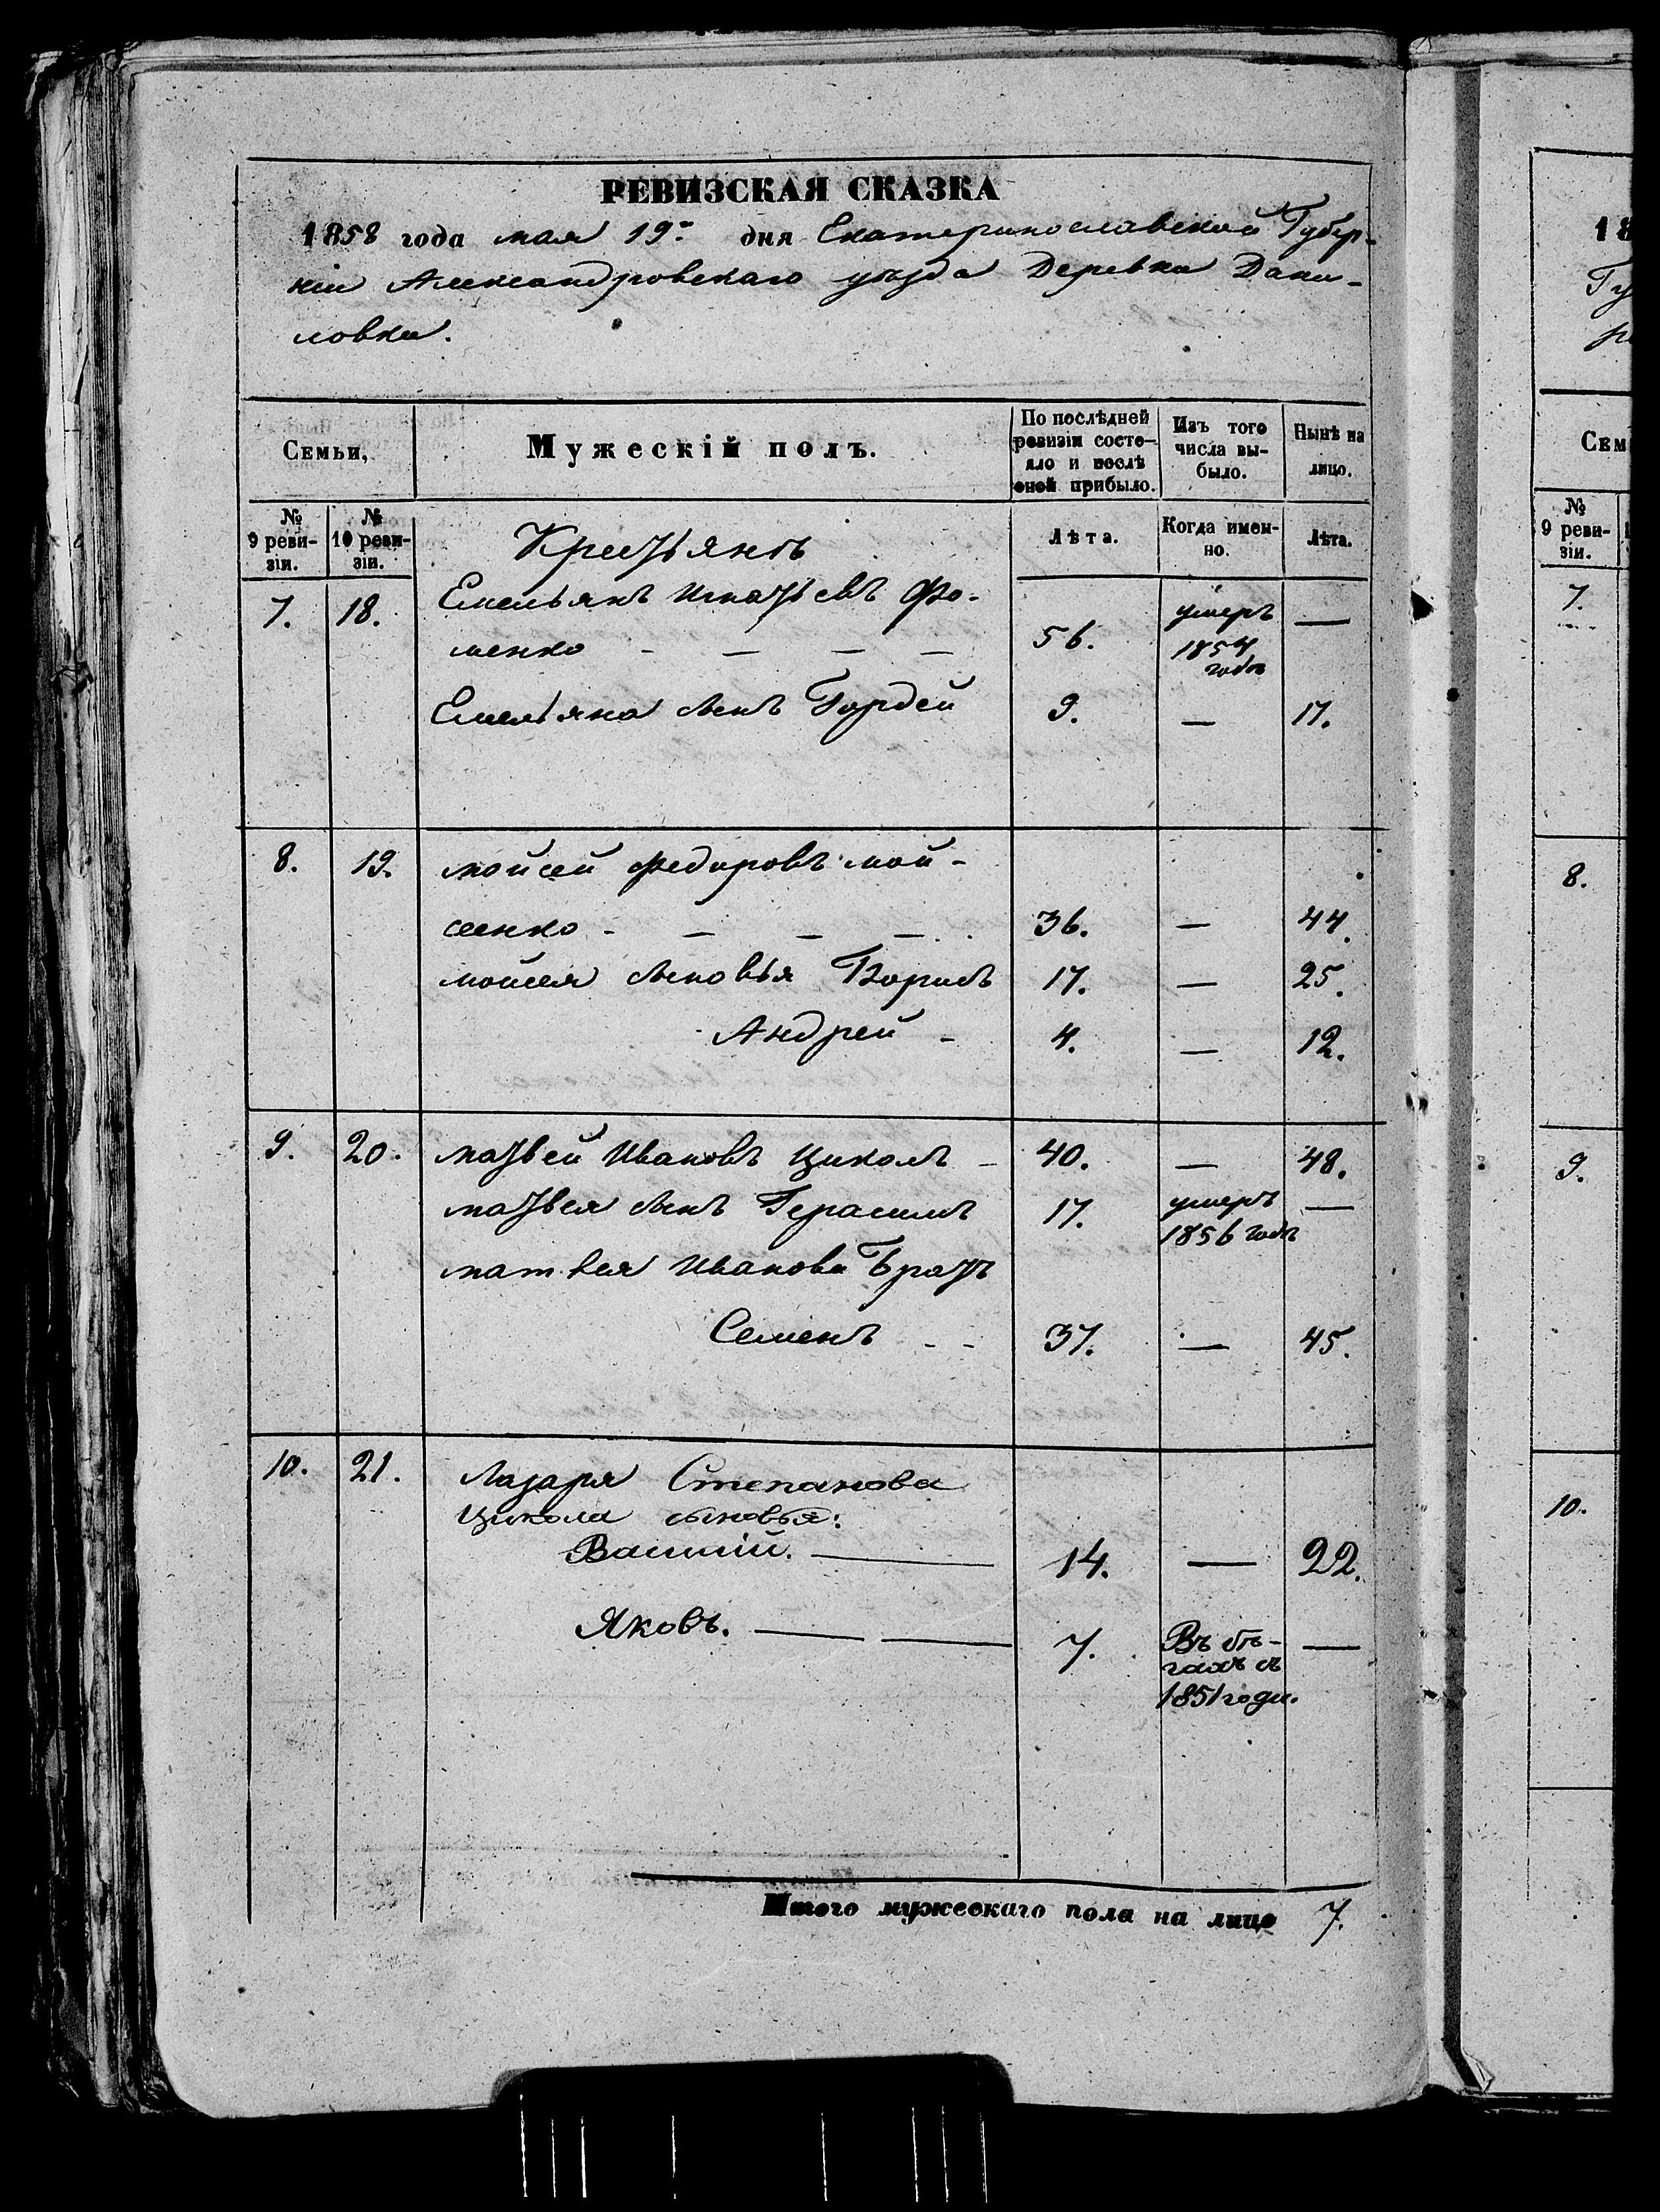 РЕВИЗСКАЯ СКАЗКА
1858 года мая 19го дня Екатеринославской Губер-
ніи Александровскаго уѣзда Деревни Дани-
ловки.
Семьи,
Мужескій полъ.
По послѣдней
ревизіи состо-
яло и послѣ
оной прибыло.
Изъ того
числа вы-
было.
Нынѣ на
лицо.
№
9 реви-
зіи.
№
10 реви-
зіи.
Крестьянъ
Лѣта.
Когда имен-
но.
Лѣта.
7. 18. Емельянъ Игнатьевъ Фо-
менко - — — — 56. умеръ 1854 годѣ —
Емельяна сынъ Гордей 9. — 17.
8. 19. мойсей Федоровъ мой-
сеенко - — — — 36. — 44.
мойсея сыновья Борисъ 17. — 25.
Андрей - 4. — 12.
9. 20. матвей Ивановъ Циколъ - 40. — 48.
матвея сынъ Герасимъ 17. умеръ 1856 годѣ —
матвея Иванова Братъ
Семенъ - - 37. — 45.
10. 21. Лазаря Степанова
Цикола сыновья:
Василій. — 14. — 22.
Яковъ. — — 7. Въ бѣ-
гахъ съ
1851 года. —
Итого мужескаго пола на лицо 7.
18
Гу
Сем
№
9 реви-
зіи.
7.
8.
9.
10.